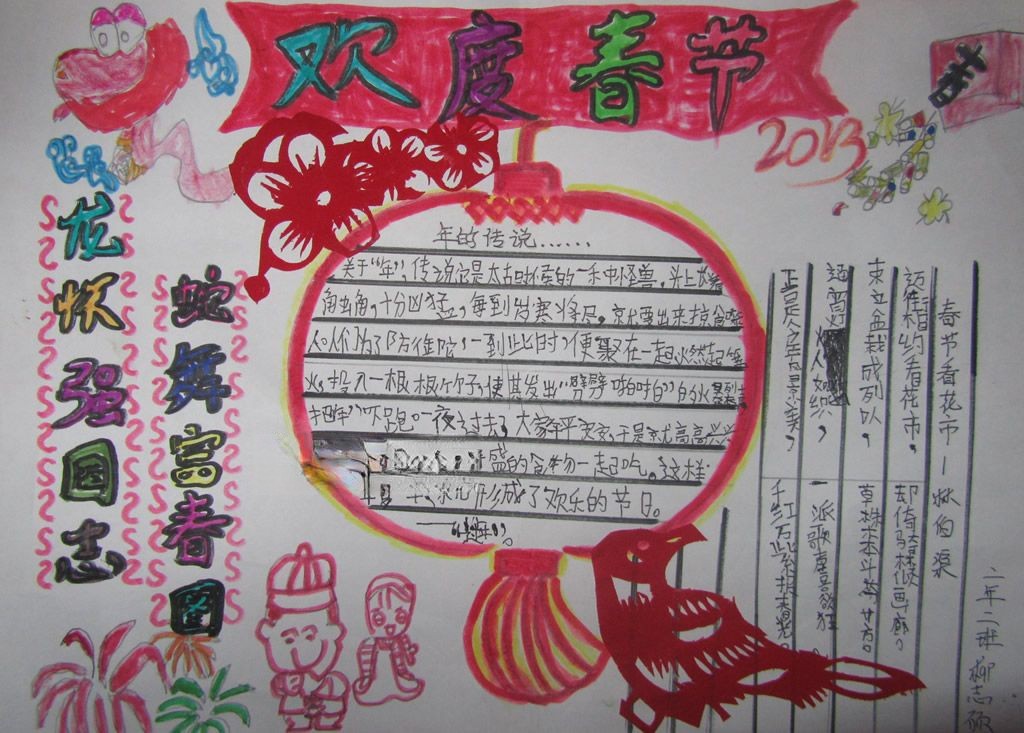 欢度春节
春
2013
龙怀强国志
蛇舞富春图
年的传说……
关于“年”，传说它是太古时候的一种怪兽，头上长着
角，十分凶猛，每到岁寒将尽，就要出来掠食
人们为了防备它，一到此时，便聚在一起，燃起
火，投入一根根竹子，使其发出“劈劈啪啪”的火爆
把“年”吓跑。一夜过去了，大家平平安安，于是就高高兴兴
盛的食物一起吃。这样
年，就形成了欢乐的节日。
春节看花市—林伯渠
迈街相约看花市，
却倚骑楼似画廊。
束立盆栽成列队，
草株木本斗芬芳。
通宵灯火人如织，
一派歌声喜欲狂。
正是今年风景美，
千红万紫报春光。
二年二班柳志硕